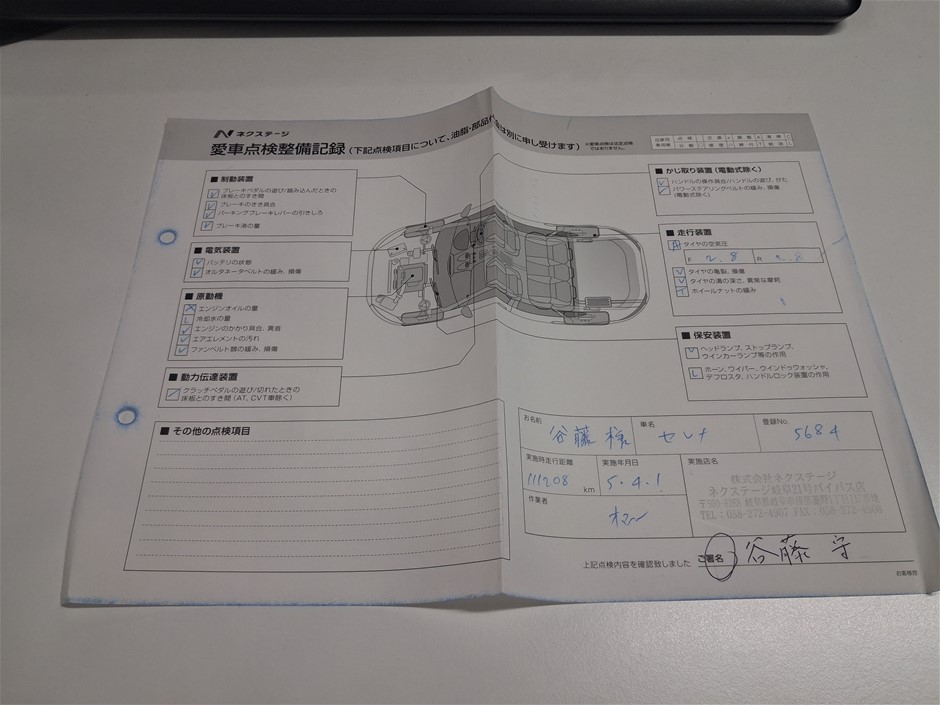 ネクステージ
愛車点検整備記録(下記点検項目について、油脂・部品代金は別に申し受けます)
※愛車点検は法定点検ではありません。
■ 制動装置
ブレーキペダルの遊び/踏み込んだときの
床板とのすき間
ブレーキのきき具合
パーキングブレーキレバーの引きしろ
ブレーキ液の量
■ 電気装置
バッテリの状態
オルタネータベルトの緩み、損傷
■ 原動機
エンジンオイルの量
冷却水の量
エンジンのかかり具合、異音
エアエレメントの汚れ
ファンベルト類の緩み、損傷
■ 動力伝達装置
クラッチペダルの遊び/切れたときの
床板とのすき間(AT、CVT車除く)
■ その他の点検項目
■ かじ取り装置(電動式除く)
ハンドルの操作具合/ハンドルの遊び、がた
パワーステアリングベルトの緩み、損傷
(電動式除く)
■ 走行装置
タイヤの空気圧
F 2.8 R 2.8
タイヤの亀裂、損傷
タイヤの溝の深さ、異常な摩耗
ホイールナットの緩み
■ 保安装置
ヘッドランプ、ストップランプ、
ウインカーランプ等の作用
ホーン、ワイパー、ウインドウォッシャ、
デフロスタ、ハンドルロック装置の作用
お名前 谷藤 様 車名 セレナ 登録No. 5684
実施時走行距離 111208 km 実施年月日 5.4.1 実施店名
株式会社ネクステージ
ネクステージ岐阜21号バイパス店
TEL:058-272-4907 FAX:058-272-4908
作業者
上記点検内容を確認致しました ご署名 谷藤 守
お客様控